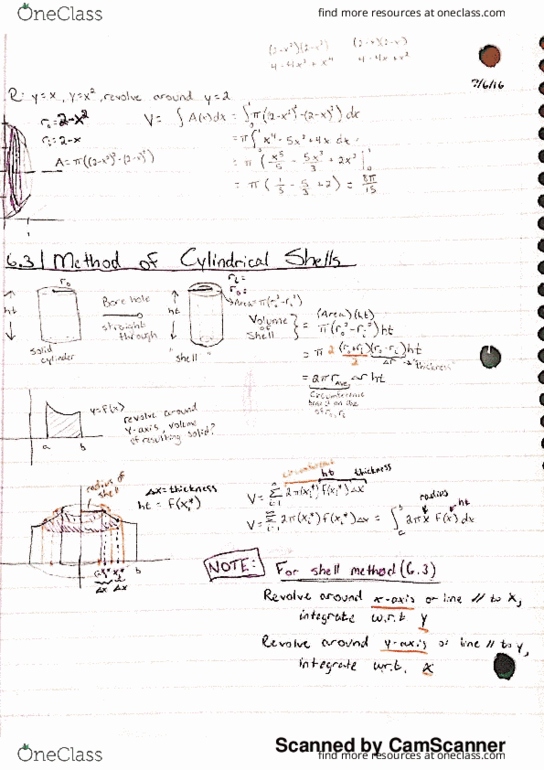 OneClass
find more resources at oneclass.com
(2-x²)(2-x²) (2-x)(2-x)
4-4x²+x⁴ 4-4x+x²
2/6/16
R: y=x, y=x², revolve around y=2
r₀=2-x²
rᵢ=2-x
A=π((2-x²)²-(2-x)²)
V= ∫A(x)dx = ∫π((2-x²)²-(2-x)²)dx
=π∫x⁴-5x²+4x dx
=π[x⁵/5 - 5x³/3 + 2x²]
=π(1/5 - 5/3 + 2) = 8π/15
6.3 | Method of Cylindrical Shells
ht
r₀
solid cylinder
Bore hole straight through
ht
rᵢ=
r₀=
Area=π(r₀²-rᵢ²)
"shell"
Volume of shell } = (Area)(ht)
π(r₀²-rᵢ²)ht
=π 2 (r₀+rᵢ)/2 (r₀-rᵢ)ht
Δr → "thickness"
=2π r ave Δr ht
Circumference
y=f(x)
a b
revolve around
y-axis, volume
of resulting solid?
radius of shell
Δx=thickness
ht = f(xᵢ*)
b
Δx Δx
circumference ht thickness
V= Σ 2π(xᵢ*)f(xᵢ*)Δx
V= Σ 2π(xᵢ*)f(xᵢ*)Δx = ∫ 2πx f(x)dx
radius ht
NOTE: For shell method (6.3)
Revolve around x-axis or line // to x,
integrate w.r.t y
Revolve around y-axis or line // to y,
integrate w.r.t. x
Scanned by CamScanner
OneClass
find more resources at oneclass.com